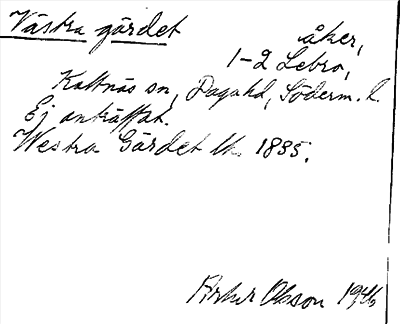 Västra gärdet åker,
1-2 Lebro,
Kattnäs sn, Daga hd, Söderm. l.
Ej anträffat.
Westra Gärdet lk 1885.
Olsson 1946